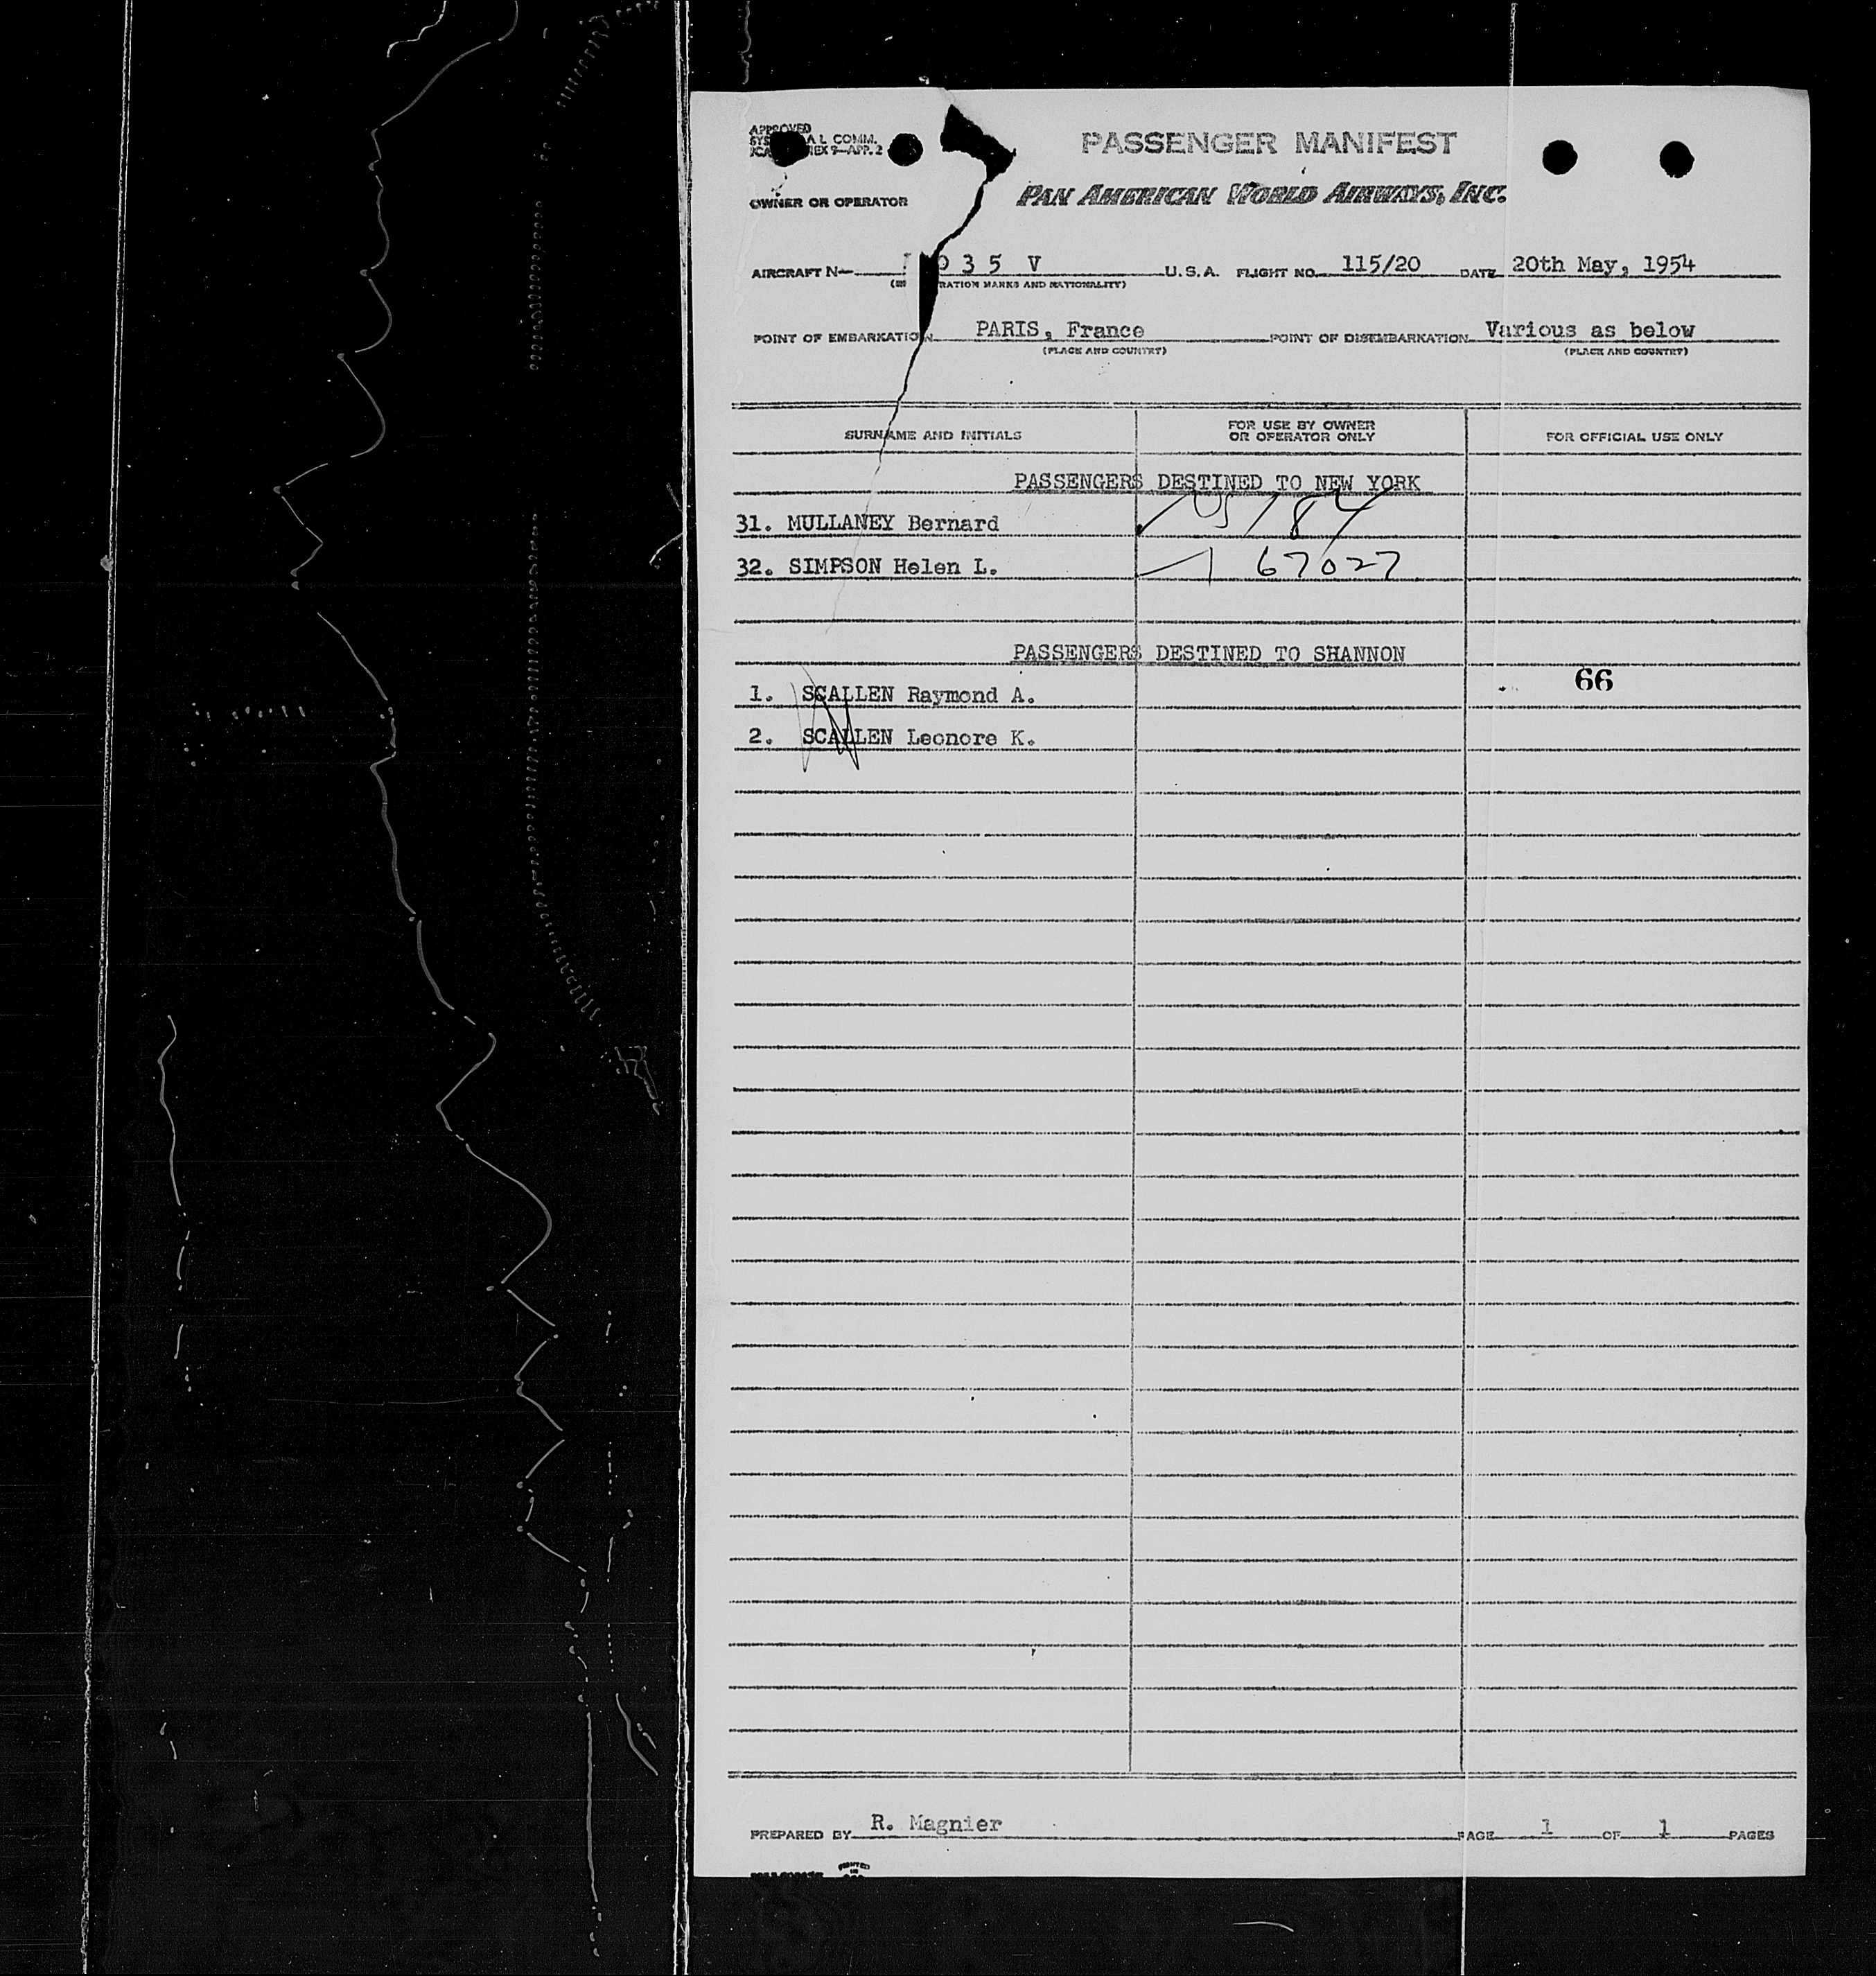 APPROVED
A L COMM.
9—APP. 2
PASSENGER MANIFEST
OWNER OR OPERATOR
PAN AMERICAN WORLD AIRWAYS, INC.
AIRCRAFT N— 0 3 5 V U.S.A. FLIGHT NO. 115/20 DATE 20th May, 1954
RATION MARKS AND NATIONALITY)
POINT OF EMBARKATION PARIS, France POINT OF DISEMBARKATION Various as below
(PLACE AND COUNTRY) (PLACE AND COUNTRY)
SURNAME AND INITIALS FOR USE BY OWNER OR OPERATOR ONLY FOR OFFICIAL USE ONLY
PASSENGERS DESTINED TO NEW YORK
31. MULLANEY Bernard
32. SIMPSON Helen L. 67027
PASSENGERS DESTINED TO SHANNON
66
1. SCALLEN Raymond A.
2. SCALLEN Leonore K.
PREPARED BY R. Magnier PAGE 1 OF 1 PAGES